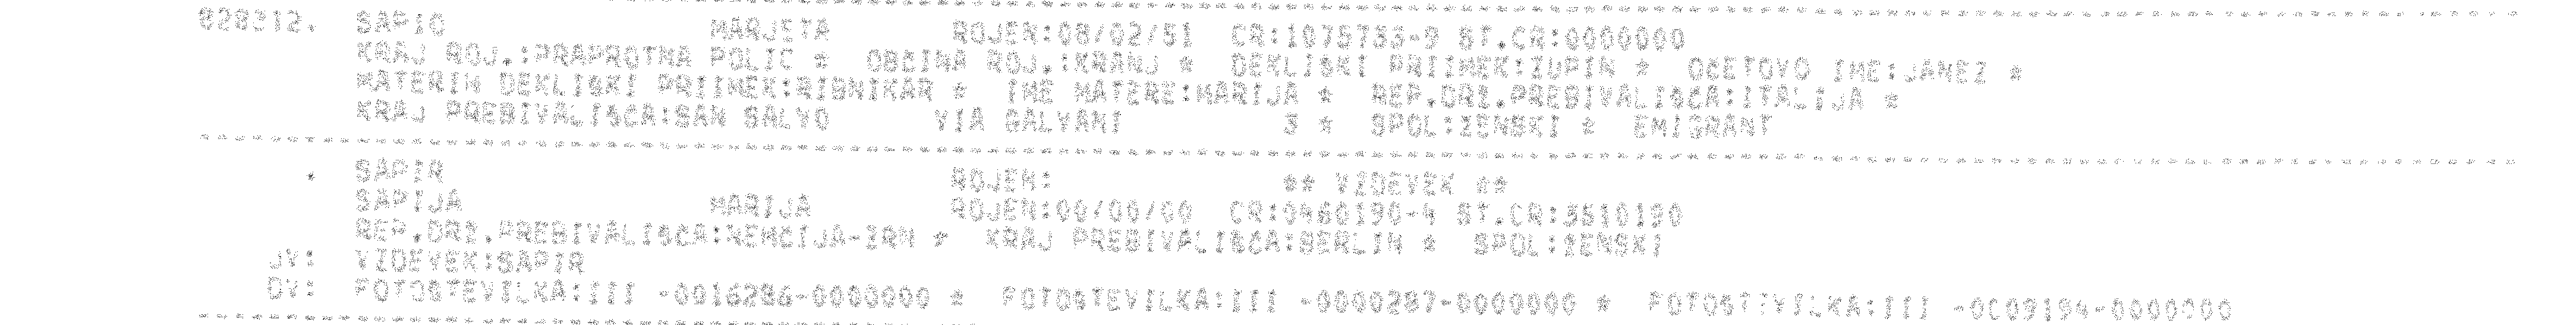 028312. SAPIO MARJETA ROJEN:08/02/51 CR:1075733-9 ST.CR:0000000
KRAJ ROJ.:PRAPROTNA POLIC * OBCINA ROJ.:KRANJ * DEKLISKI PRIIMEK:ZUPIN * OCETOVO IME:JANEZ *
MATERIN DEKLISKI PRIIMEK:RIBNIKAR * IME MATERE:MARIJA * REP.DRZ.PREBIVALISCA:ITALIJA *
KRAJ PREBIVALISCA:SAN SALVO VIA GALVANI 3 * SPOL:ZENSKI * EMIGRANT
* SAPIR ROJEN: ** VZDEVEK **
SAPIJA MARIJA ROJEN:00/00/00 CR:0460190-4 ST.CR:3510190
REP.DRZ.PREBIVALISCA:NEMCIJA-ZRN * KRAJ PREBIVALISCA:BERLIN * SPOL:ZENSKI
JV: VZDEVEK:SAPIR
DV: FOTOSTEVILKA:III -0016286-0000000 * FOTOSTEVILKA:III -0000287-0000000 * FOTOSTEVILKA:III -0009194-0000000